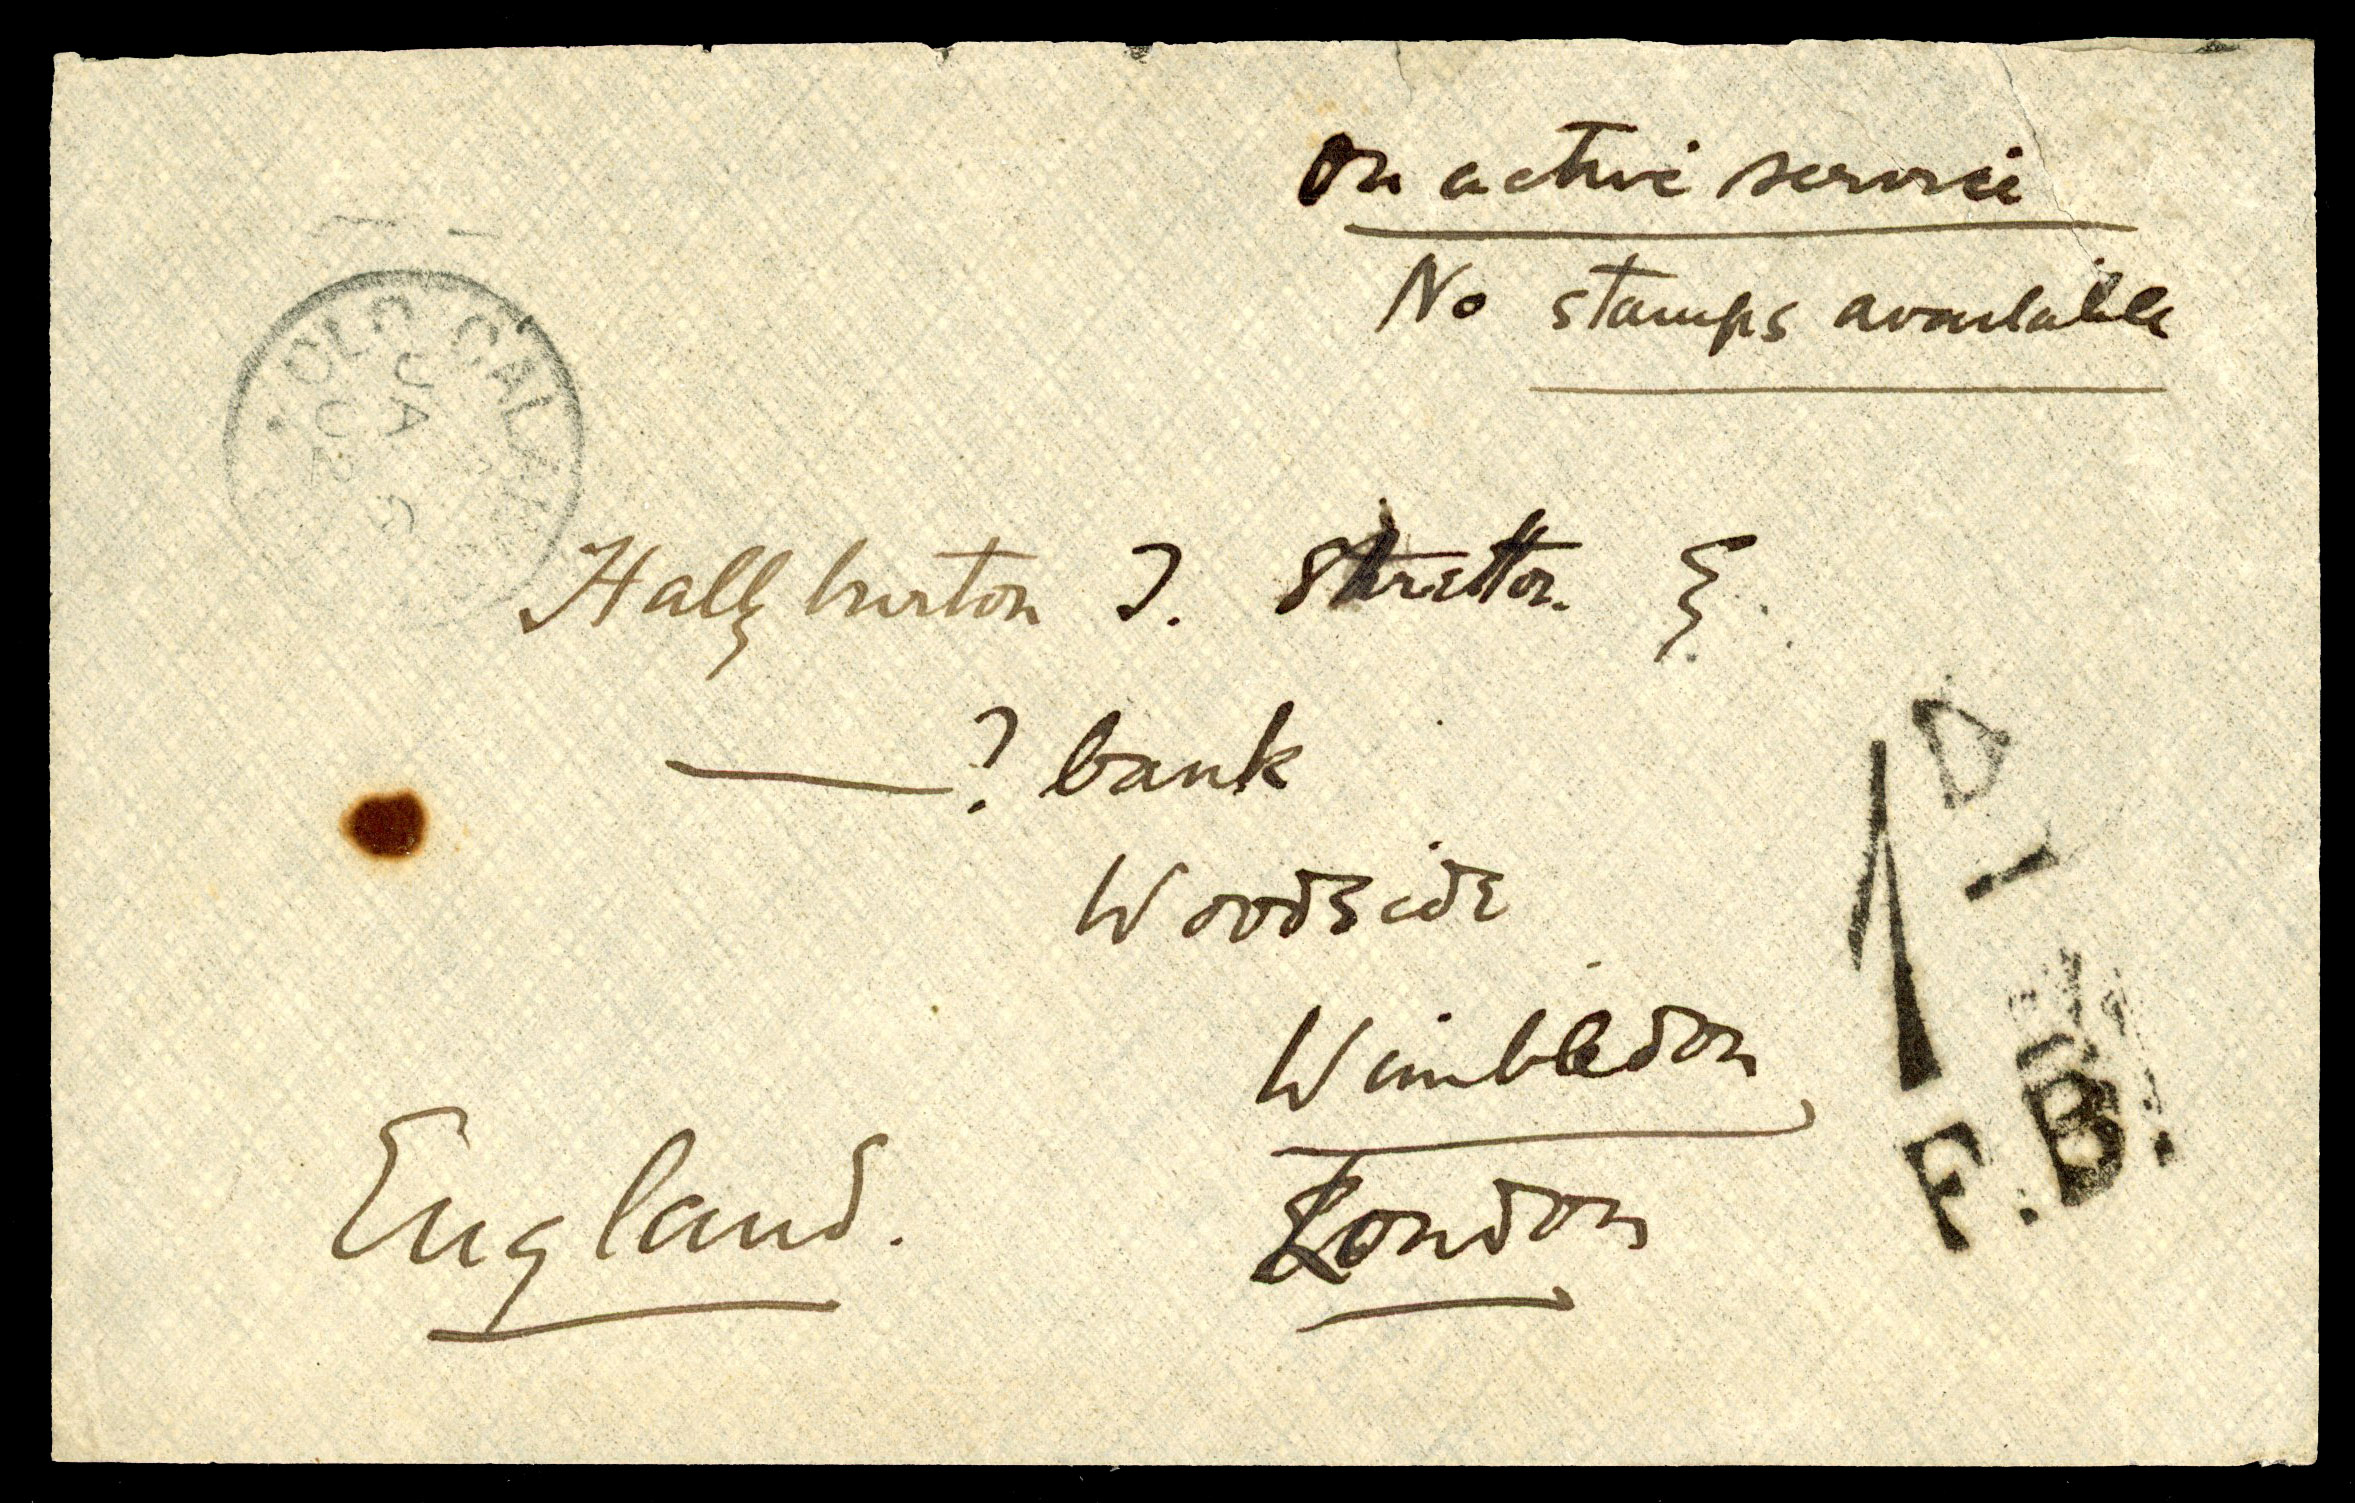 On active service
No stamps available
JA
02
Hallyburton J. Stretton.
? bank
Woodside
Wimbledon
London
England.
1 D
F.B.